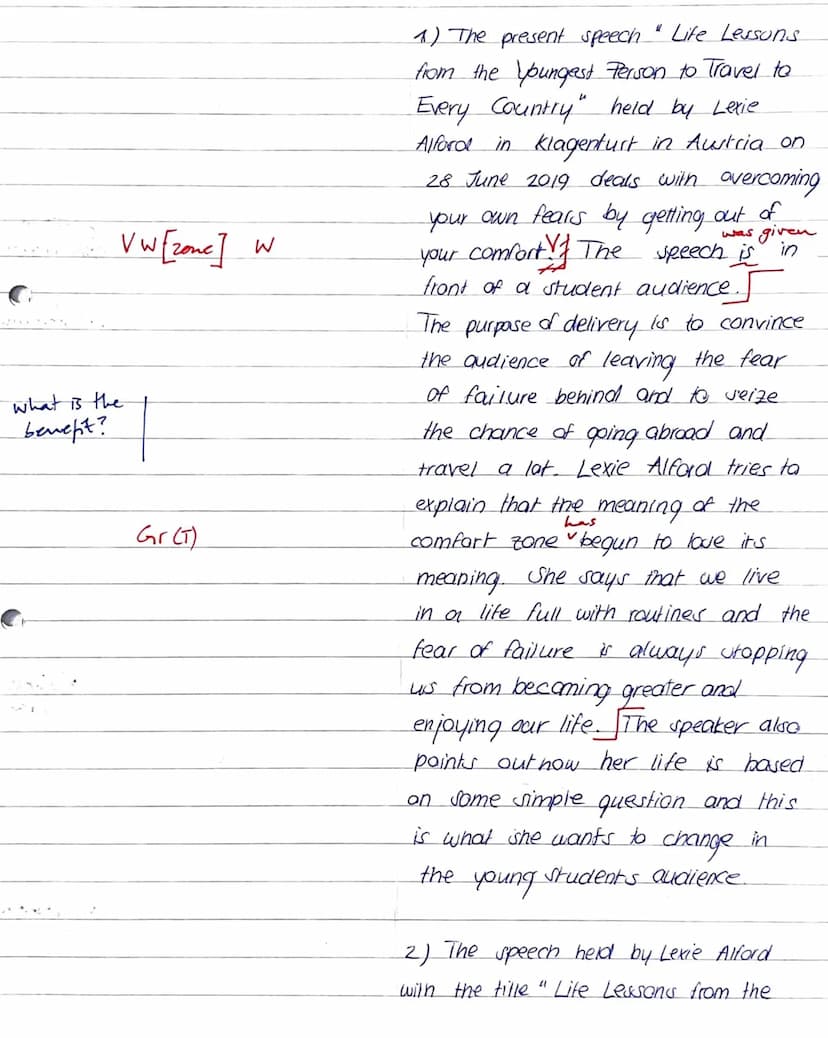 1) The present speech " Life Lessons
from the Youngest Person to Travel to
Every Country" held by Lexie
Alford in Klagenfurt in Austria on
28 June 2019 deals with overcoming
your own fears by getting out of
was given
V W [zone] W
your comfort. V } The speech is in
front of a student audience.
The purpose of delivery is to convince
the audience of leaving the fear
of failure behind and to seize
what is the
benefit?
the chance of going abroad and
travel a lot. Lexie Alford tries to
explain that the meaning of the
has
Gr (T)
comfort zone v begun to lose its
meaning. She says that we live
in a life full with routines and the
fear of failure is always stopping
us from becoming greater and
enjoying our life. The speaker also
points out how her life is based
on some simple question and this
is what she wants to change in
the young students audience.
2) The speech held by Lexie Alford
with the title " Life Lessons from the